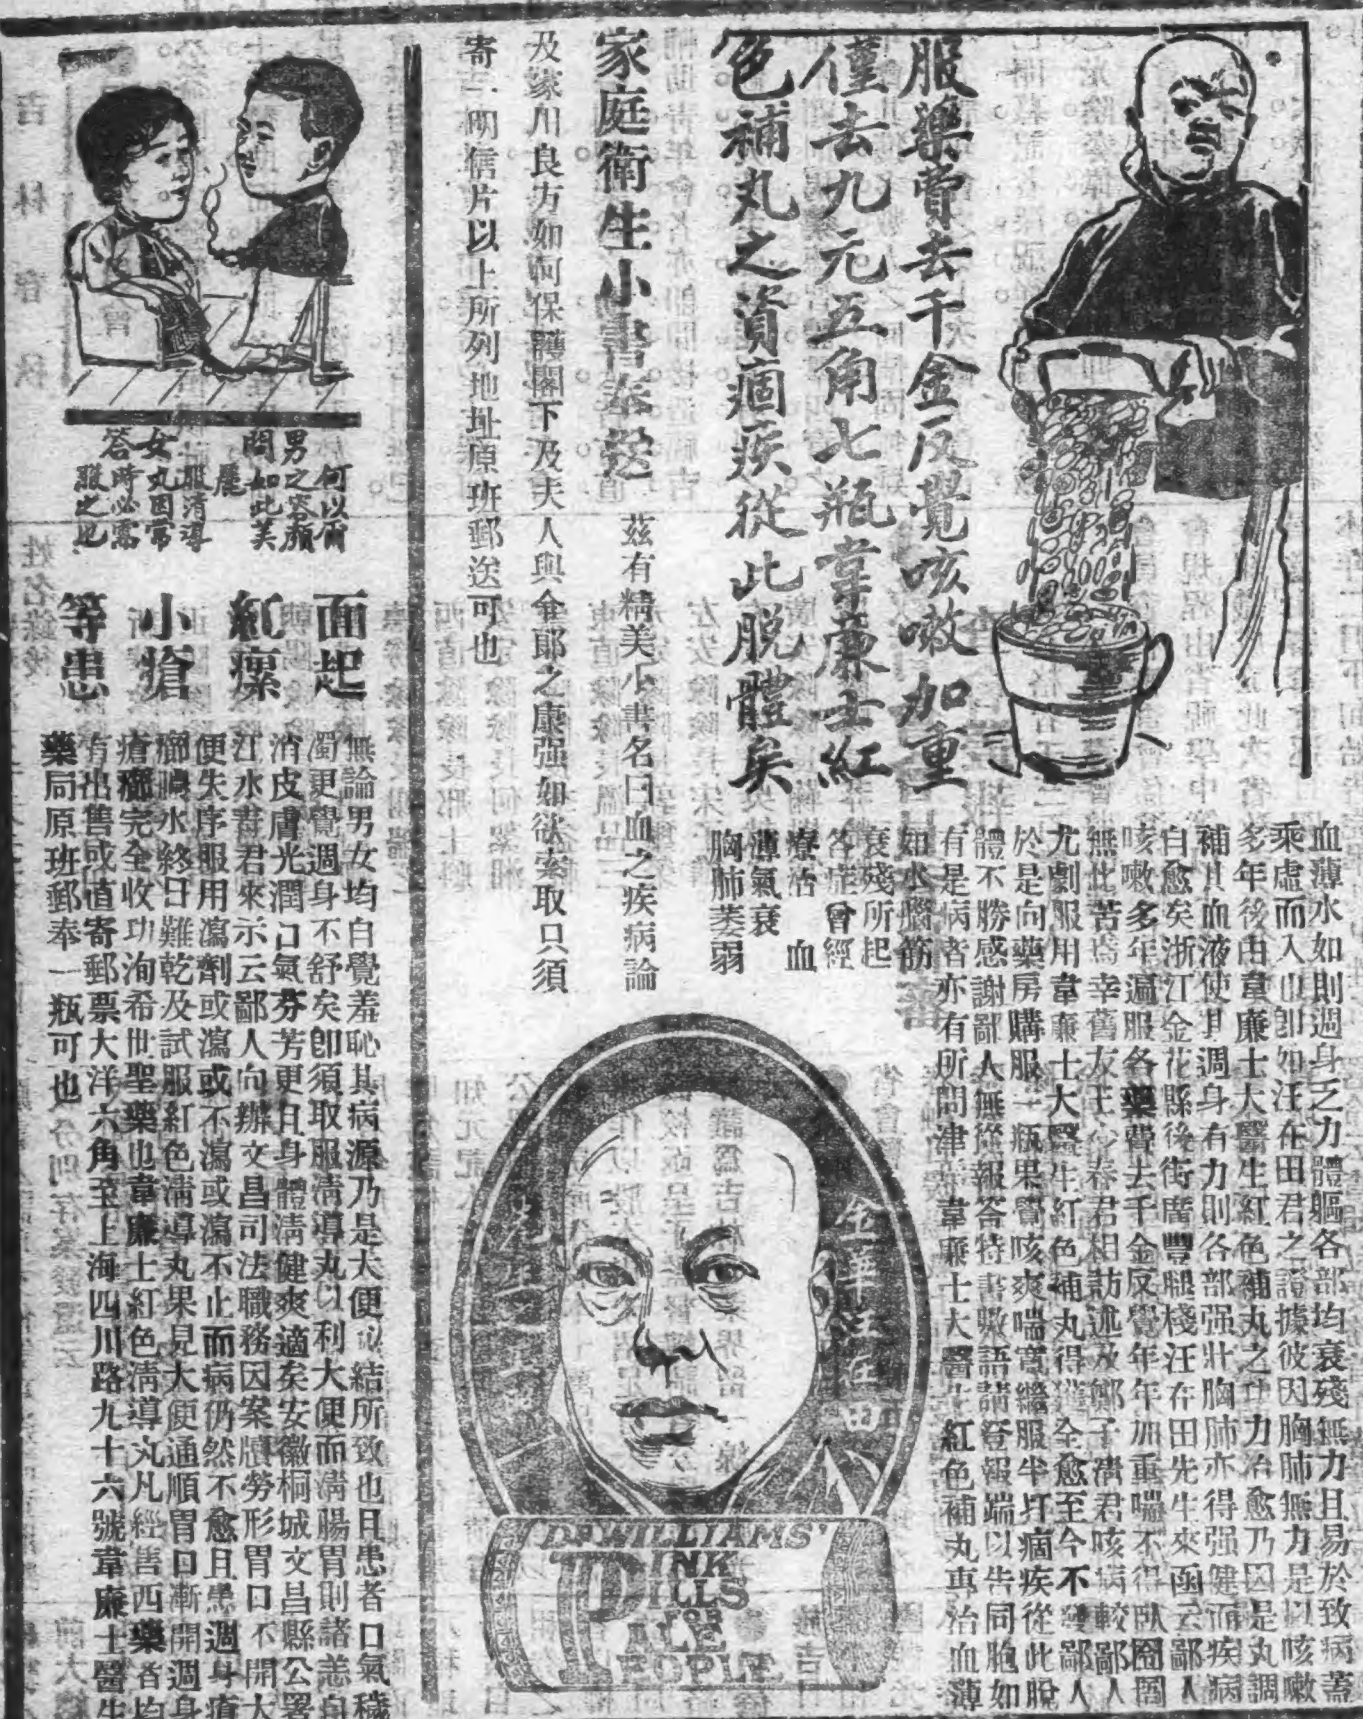 服藥費去千金反覺咳嗽加重
僅去九元五角七瓶韋廉士紅
色補丸之資痼疾從此脫體矣
血薄水如則週身乏力體軀各部均衰殘無力且易於致病蓋
乘虛而入也卽如汪在田君之證據彼因胸肺無力是以咳嗽
多年後由韋廉士大醫生紅色補丸之功力治愈乃因是丸調
補其血液使其週身有力則各部强壯胸肺亦得强健而疾病
自愈矣浙江金花縣後街廣豐腿棧汪在田先生來函云鄙人
咳嗽多年遍服各藥費去千金反覺年年加重喘不得臥囹圄
無此苦焉幸舊友王春君相訪述及鄭子清君咳病較鄙人
尤劇服用韋廉士大醫生紅色補丸得全愈至今不發鄙人
於是向藥房購服一瓶果覺咳爽喘寬繼服半打痼疾從此脫
體不勝感謝鄙人無從報答特書數語請登報端以告同胞如
有是病者亦有所問津韋廉士大醫生紅色補丸專治血薄
如水腦筋
衰殘所起
各症曾經
療治 血
薄氣衰
胸肺萎弱
金華汪在田
先生
DR WILLIAMS'
PINK
PILLS
FOR
PALE
PEOPLE
家庭衛生小書奉送 茲有精美小書名曰血之疾病論
及家用良方如何保護閣下及夫人與令郎之康强如欲索取只須
寄一明信片以上所列地址原班郵送可也
男問
何以爾之容顏如此美麗
女答
服清導丸因常時必需服之也
面起
紅瘰
小瘡
等患
無論男女均自覺羞恥其病源乃是大便祕結所致也且患者口氣穢
濁更覺週身不舒矣卽須取服清導丸以利大便而清腸胃則諸恙自
消皮膚光潤口氣芬芳更且身體清健爽適矣安徽桐城文昌縣公署
江水青君來示云鄙人向辦文昌司法職務因案牘勞形胃口不開大
便失序服用瀉劑或瀉或不瀉或瀉不止而病仍然不愈且患週身瘡
癤膿水終日難乾及試服紅色清導丸果見大便通順胃口漸開週身
瘡癤完全收功洵希世聖藥也韋廉士紅色清導丸凡經售西藥者均
有出售或值寄郵票大洋六角至上海四川路九十六號韋廉士醫生
藥局原班郵奉一瓶可也